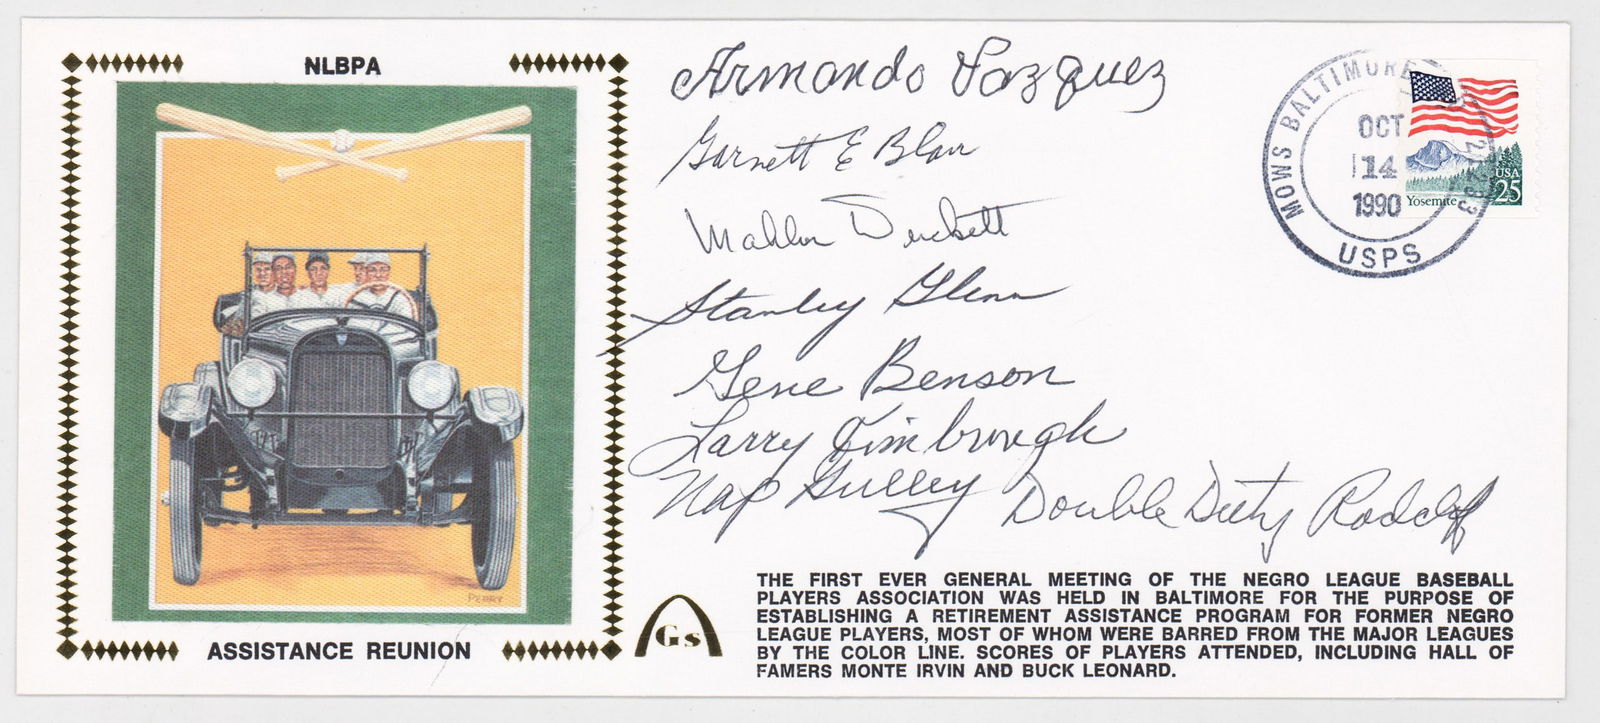 NLBPA
PERRY
ASSISTANCE REUNION
Armando Vazquez
Garnett E Blair
Mahlon Duckett
Stanley Glenn
Gene Benson
Larry Kimbrough
Nap Gulley
Double Duty Radcliff
MOWS BALTIMORE
OCT
14
1990
USPS
USA
25
Yosemite
Gs
THE FIRST EVER GENERAL MEETING OF THE NEGRO LEAGUE BASEBALL
PLAYERS ASSOCIATION WAS HELD IN BALTIMORE FOR THE PURPOSE OF
ESTABLISHING A RETIREMENT ASSISTANCE PROGRAM FOR FORMER NEGRO
LEAGUE PLAYERS, MOST OF WHOM WERE BARRED FROM THE MAJOR LEAGUES
BY THE COLOR LINE. SCORES OF PLAYERS ATTENDED, INCLUDING HALL OF
FAMERS MONTE IRVIN AND BUCK LEONARD.